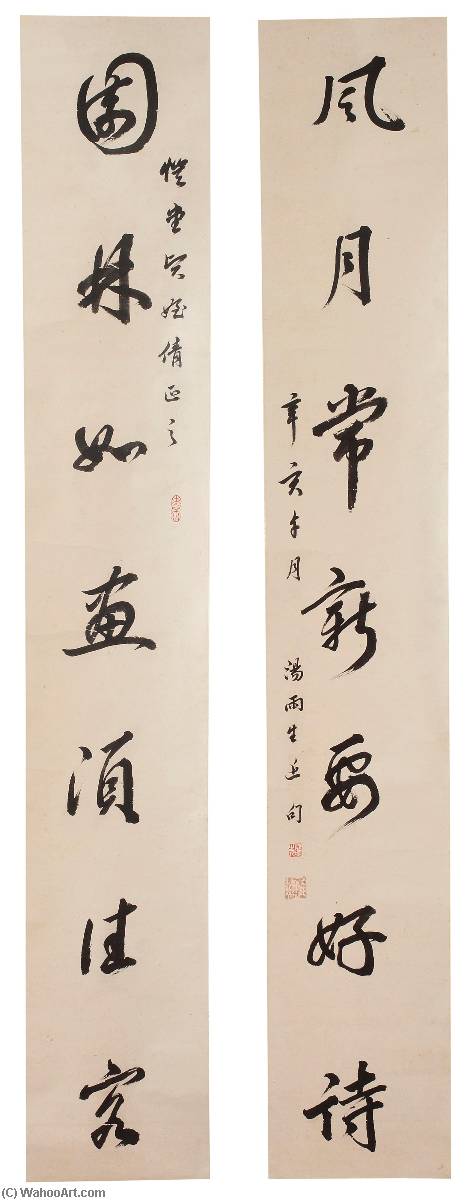 風月常新要好詩
辛亥午月 湯雨生
堂賢姪倩正之
園林如畫須佳客
(C) WahooArt.com